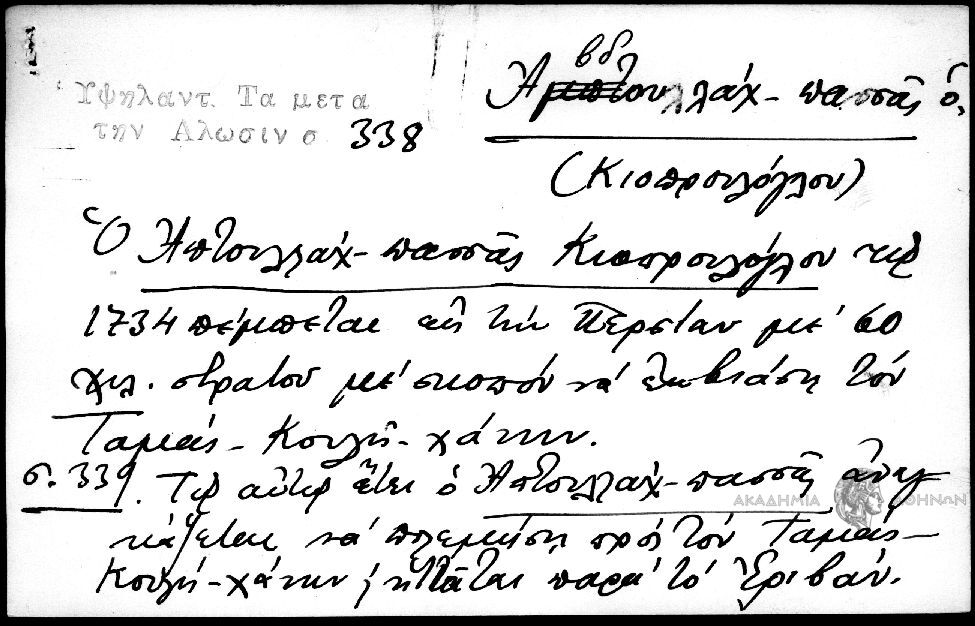 Ὑψηλαντ. Τα μετα
την Αλωσιν σ. 338
Ἀβδουλλάχ-πασσᾶς ὁ.
(Κιοπρουλόγλου)
Ὁ Ἀπτουλλάχ-πασσᾶς Κιοπρουλόγλου τῷ
1734 πέμπεται εἰς τὴν Περσίαν μέ 60
χιλ. στρατοῦ μέ σκοπόν νά ἐκβιάσῃ τόν
Ταμάς-Κουλῆ-χάνην.
σ. 339. Τῷ αὐτῷ ἔτει ὁ Ἀπτουλλάχ-πασσᾶς ἀναγ-
κάζεται νά πολεμήσῃ πρός τόν Ταμάς-
Κουλῆ-χάνην, ἡττᾶται παρά τό Ἐριβάν.
ΑΚΑΔΗΜΙΑ ΑΘΗΝΩΝ